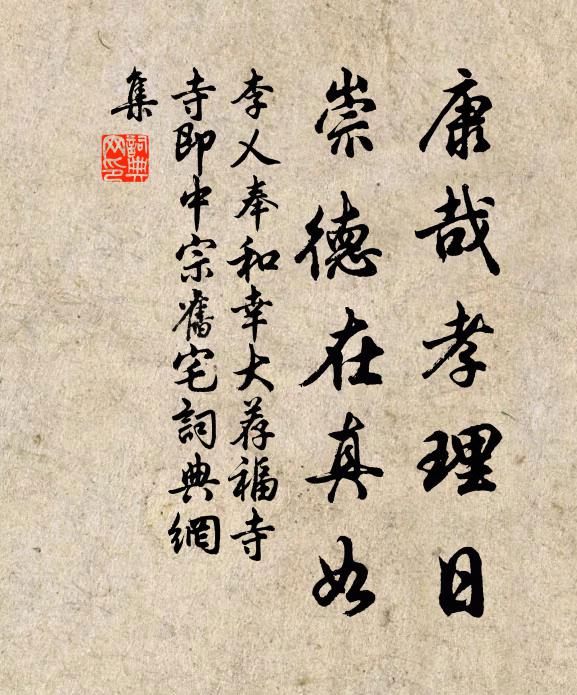 康哉孝理日
崇德在真如
李乂奉和幸大荐福寺
寺即中宗舊宅詞典網
集
詞典网印